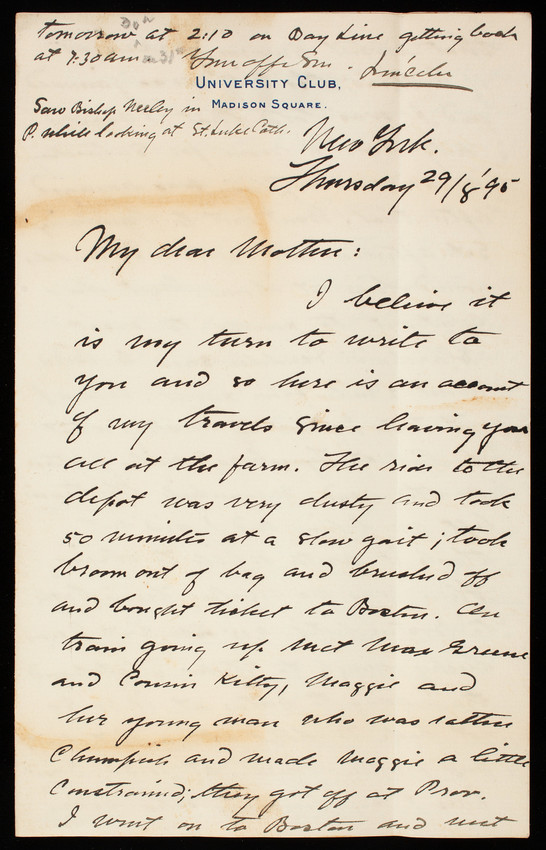 tomorrow at 2:10 on Day Line getting back
at 7:30 am. Your aff. Son.
Lincoln
UNIVERSITY CLUB,
MADISON SQUARE.
Saw Bishop Neeley in
P. while looking at St. Luke Cath.
New York.
Thursday 29/8/'95
My dear Mother:
I believe it
is my turn to write to
you and so here is an account
of my travels since leaving you
all at the farm. The ride to the
depot was very dusty and took
50 minutes at a slow gait; took
broom out of bag and brushed off
and bought ticket to Boston. On
train going up met Max Greene
and Cousin Kitty, Maggie and
her young man who was rather
chumpish and made Maggie a little
constrained; they got off at Prov.
I went on to Boston and met